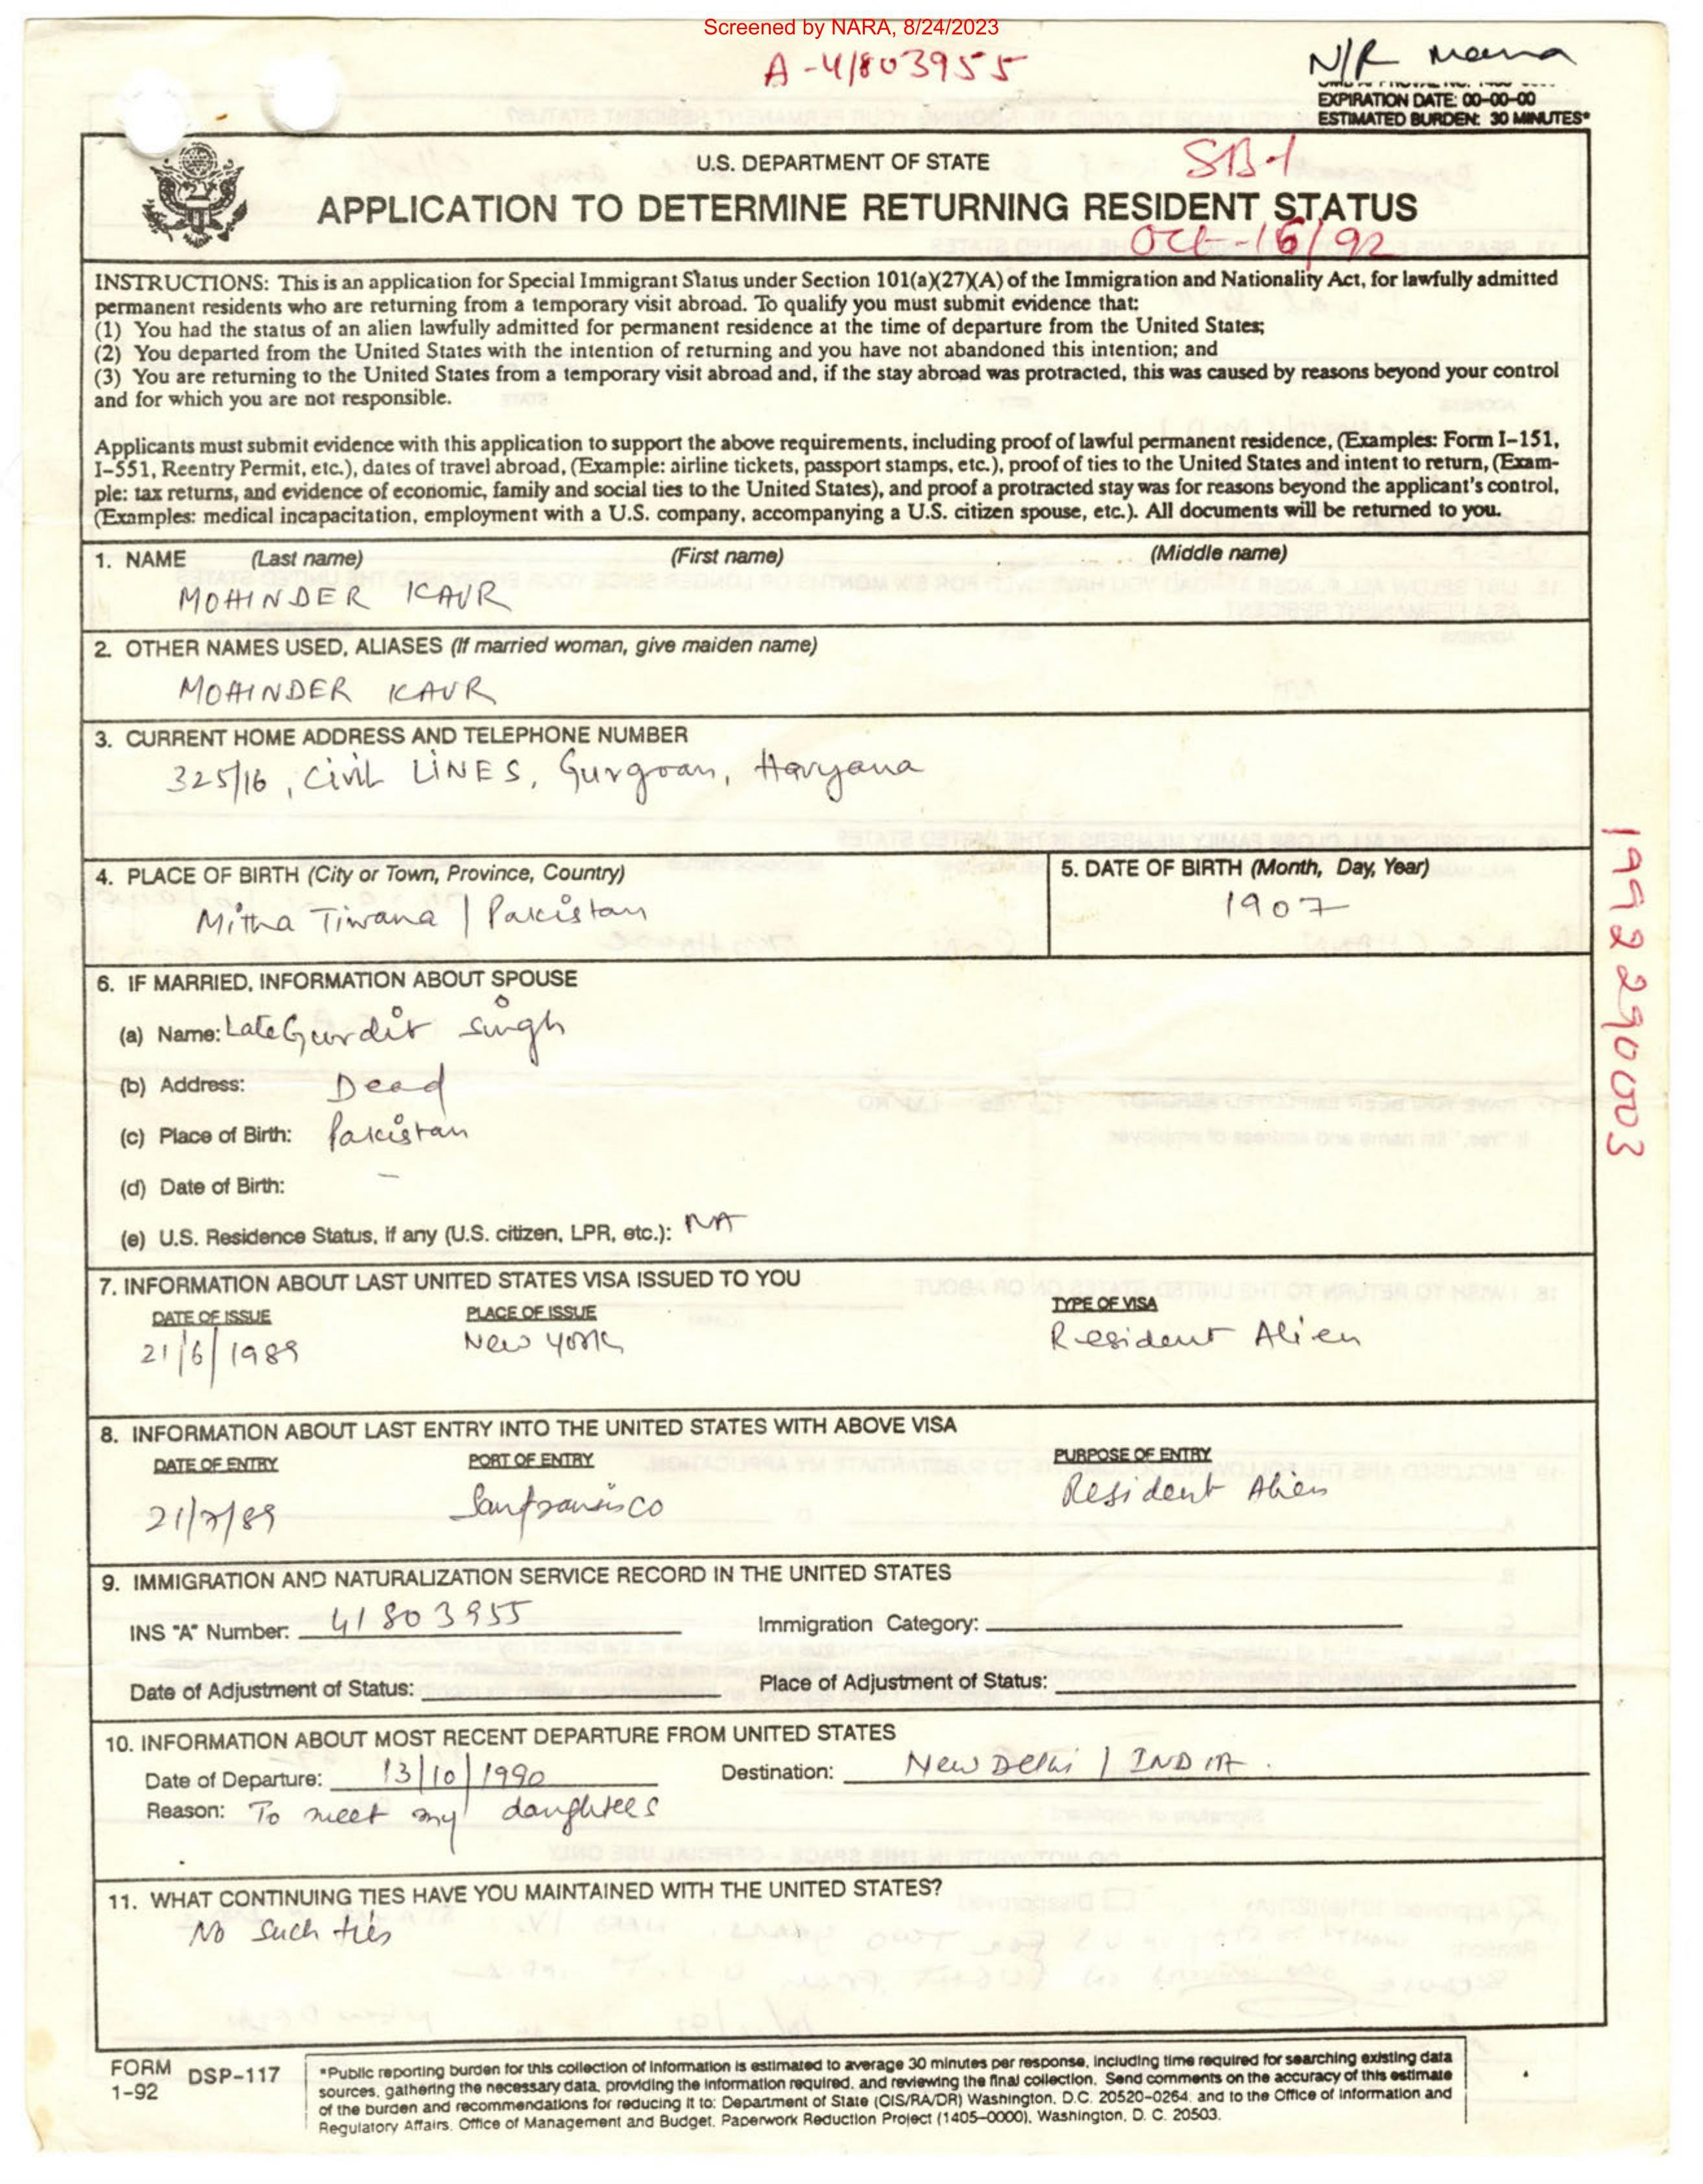 Screened by NARA, 8/24/2023
A-41803955
N/R
EXPIRATION DATE: 00-00-00
ESTIMATED BURDEN: 30 MINUTES*
U.S. DEPARTMENT OF STATE
SB-1
APPLICATION TO DETERMINE RETURNING RESIDENT STATUS
Oct-16/92
INSTRUCTIONS: This is an application for Special Immigrant Status under Section 101(a)(27)(A) of the Immigration and Nationality Act, for lawfully admitted
permanent residents who are returning from a temporary visit abroad. To qualify you must submit evidence that:
(1) You had the status of an alien lawfully admitted for permanent residence at the time of departure from the United States;
(2) You departed from the United States with the intention of returning and you have not abandoned this intention; and
(3) You are returning to the United States from a temporary visit abroad and, if the stay abroad was protracted, this was caused by reasons beyond your control
and for which you are not responsible.
Applicants must submit evidence with this application to support the above requirements, including proof of lawful permanent residence, (Examples: Form I-151,
I-551, Reentry Permit, etc.), dates of travel abroad, (Example: airline tickets, passport stamps, etc.), proof of ties to the United States and intent to return, (Exam-
ple: tax returns, and evidence of economic, family and social ties to the United States), and proof a protracted stay was for reasons beyond the applicant's control,
(Examples: medical incapacitation, employment with a U.S. company, accompanying a U.S. citizen spouse, etc.). All documents will be returned to you.
1. NAME (Last name) (First name) (Middle name)
MOHINDER KAUR
2. OTHER NAMES USED, ALIASES (If married woman, give maiden name)
MOHINDER KAUR
3. CURRENT HOME ADDRESS AND TELEPHONE NUMBER
325/16, Civil LINES, Gurgoan, Haryana
4. PLACE OF BIRTH (City or Town, Province, Country)
Mitha Tiwana / Pakistan
5. DATE OF BIRTH (Month, Day, Year)
1907
6. IF MARRIED, INFORMATION ABOUT SPOUSE
(a) Name: Late Gurdit Singh
(b) Address: Dead
(c) Place of Birth: Pakistan
(d) Date of Birth: –
(e) U.S. Residence Status, if any (U.S. citizen, LPR, etc.): NA
7. INFORMATION ABOUT LAST UNITED STATES VISA ISSUED TO YOU
DATE OF ISSUE PLACE OF ISSUE TYPE OF VISA
21/6/1989 New York Resident Alien
8. INFORMATION ABOUT LAST ENTRY INTO THE UNITED STATES WITH ABOVE VISA
DATE OF ENTRY PORT OF ENTRY PURPOSE OF ENTRY
21/7/89 Sanfransisco Resident Alien
9. IMMIGRATION AND NATURALIZATION SERVICE RECORD IN THE UNITED STATES
INS "A" Number: 41803955 Immigration Category:
Date of Adjustment of Status: Place of Adjustment of Status:
10. INFORMATION ABOUT MOST RECENT DEPARTURE FROM UNITED STATES
Date of Departure: 13/10/1990 Destination: New Delhi / INDIA.
Reason: To meet my daughters
11. WHAT CONTINUING TIES HAVE YOU MAINTAINED WITH THE UNITED STATES?
No such ties
1992290003
FORM DSP-117
1-92
*Public reporting burden for this collection of information is estimated to average 30 minutes per response, including time required for searching existing data
sources, gathering the necessary data, providing the information required, and reviewing the final collection. Send comments on the accuracy of this estimate
of the burden and recommendations for reducing it to: Department of State (OIS/RA/DR) Washington, D.C. 20520-0264, and to the Office of Information and
Regulatory Affairs, Office of Management and Budget, Paperwork Reduction Project (1405-0000), Washington, D. C. 20503.